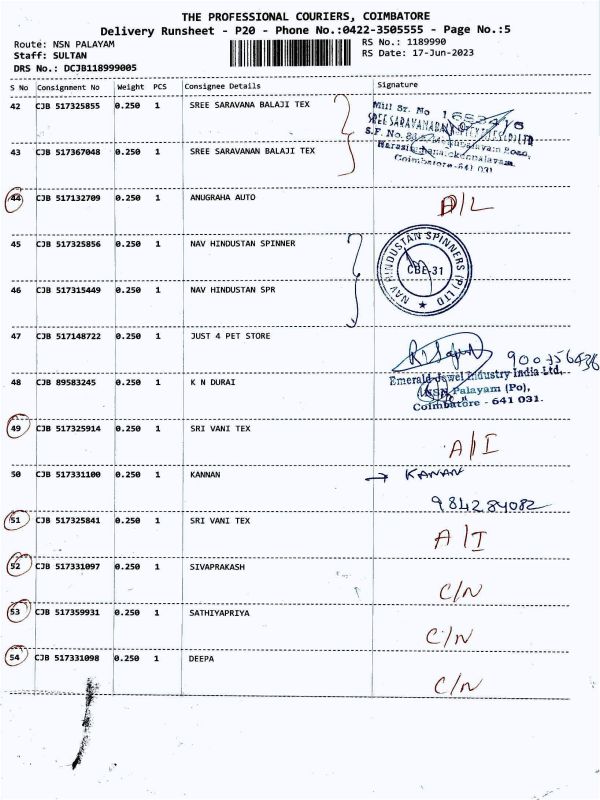 THE PROFESSIONAL COURIERS, COIMBATORE
Delivery Runsheet - P20 - Phone No.:0422-3505555 - Page No.:5
Route: NSN PALAYAM
Staff: SULTAN
DRS No.: DCJB118999005
RS No.: 1189990
RS Date: 17-Jun-2023
S No Consignment No Weight PCS Consignee Details Signature
42 CJB 517325855 0.250 1 SREE SARAVANA BALAJI TEX
Mill Sr. No
S.F. No.
Coimbatore-641 031
43 CJB 517367048 0.250 1 SREE SARAVANAN BALAJI TEX
44 CJB 517132709 0.250 1 ANUGRAHA AUTO D/L
45 CJB 517325856 0.250 1 NAV HINDUSTAN SPINNER
NAV HINDUSTAN SPINNERS (P) LTD
CBE-31
46 CJB 517315449 0.250 1 NAV HINDUSTAN SPR
47 CJB 517148722 0.250 1 JUST 4 PET STORE
48 CJB 89583245 0.250 1 K N DURAI
Emerald Jewel Industry India Ltd.,
NSN Palayam (Po),
Coimbatore - 641 031.
49 CJB 517325914 0.250 1 SRI VANI TEX A/I
50 CJB 517331100 0.250 1 KANNAN → KANAN
984284082
51 CJB 517325841 0.250 1 SRI VANI TEX A/I
52 CJB 517331097 0.250 1 SIVAPRAKASH C/N
53 CJB 517359931 0.250 1 SATHIYAPRIYA C/N
54 CJB 517331098 0.250 1 DEEPA C/N